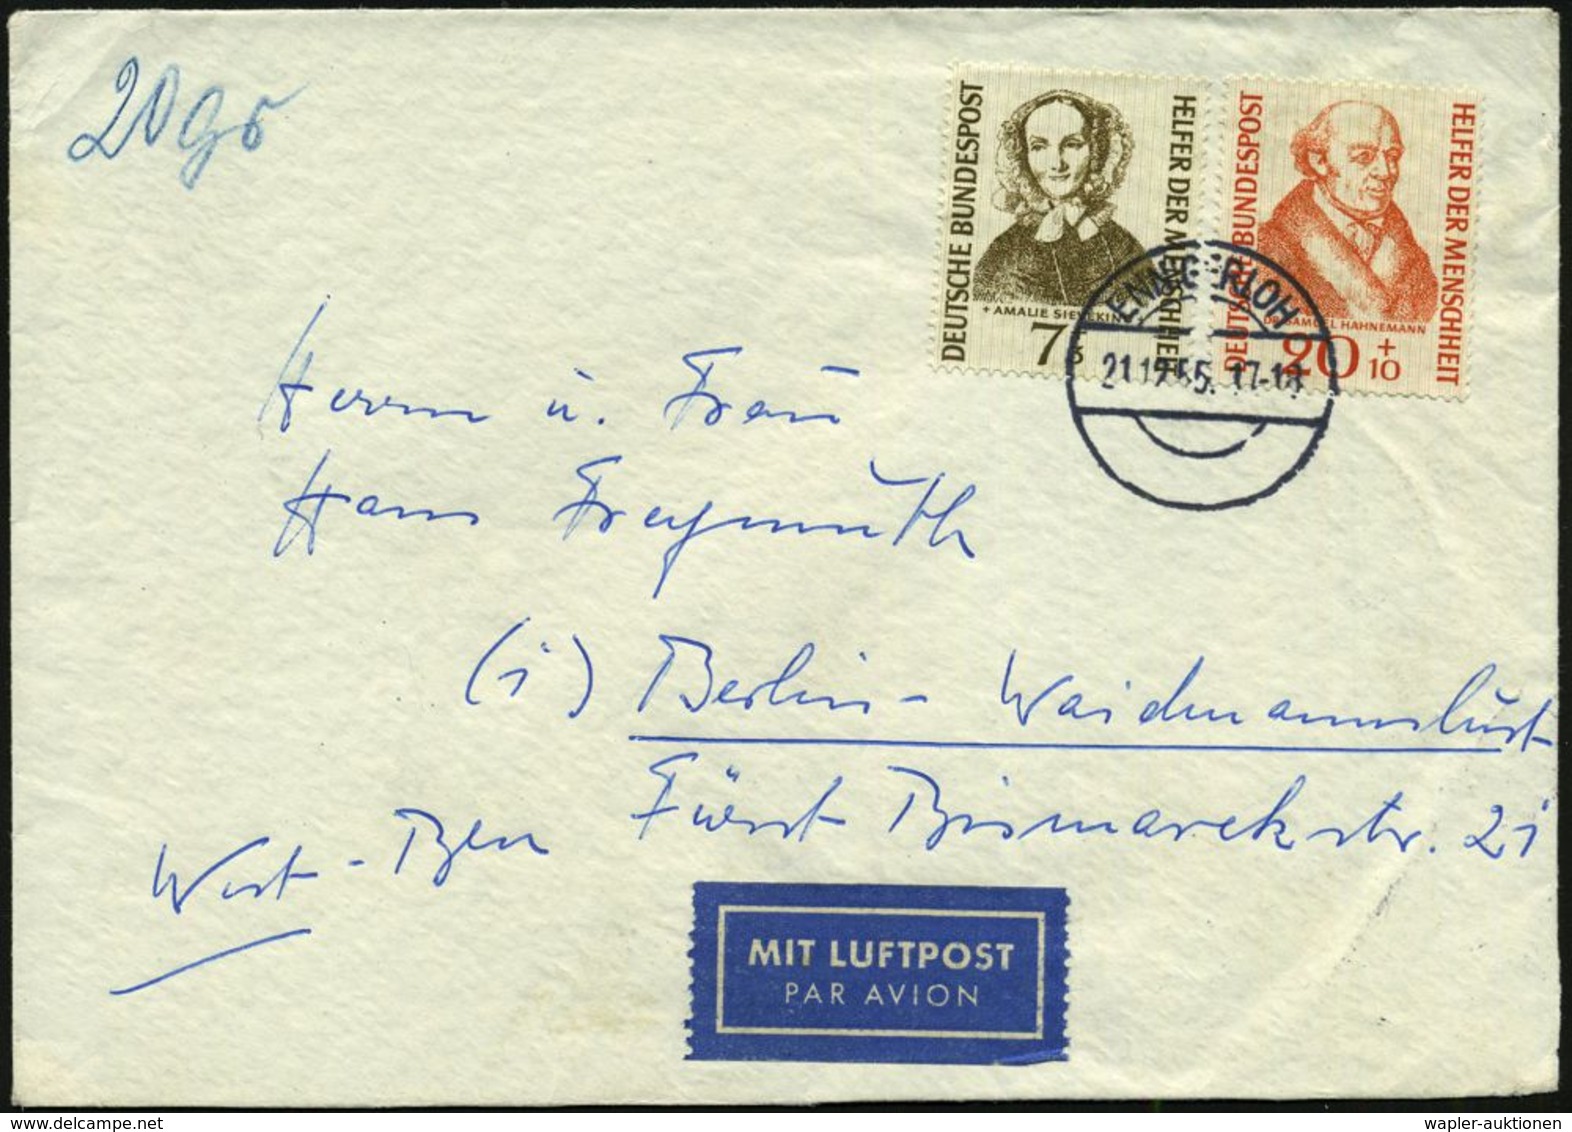 20 gr
DEUTSCHE BUNDESPOST
HELFER DER MENSCHHEIT
+ AMALIE SIEVEKING
7+3
DEUTSCHE BUNDESPOST
HELFER DER MENSCHHEIT
DR. SAMUEL HAHNEMANN
20+10
ENNIGERLOH
21.12.55. 17-18
Herrn u. Frau
Hans Freymuth
(1) Berlin - Waidmannslust
Fürst Bismarckstr. 21
West - Bln
MIT LUFTPOST
PAR AVION
wapler-auktionen